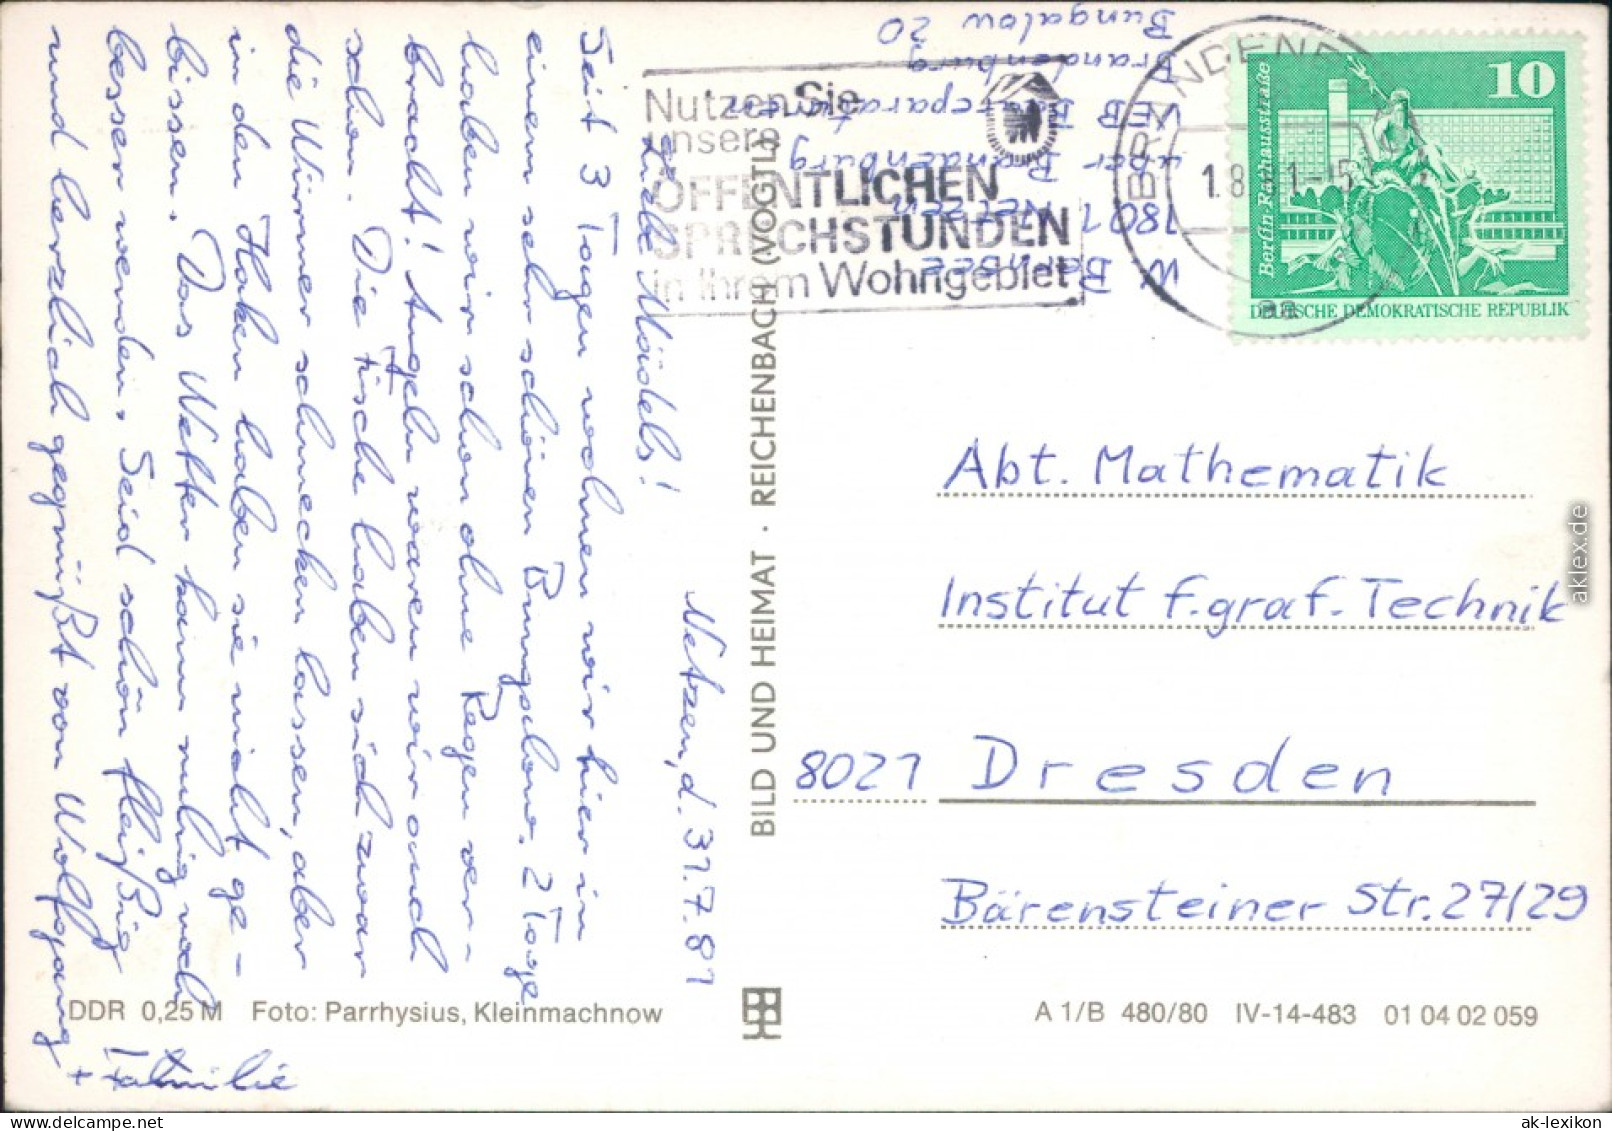 Netzen, d. 31.7.81
Liebe Mädels!
Seit 3 Tagen wohnen wir hier in
einem sehr schönen Bungalow. 2 Tage
haben wir schon ohne Regen ver-
bracht! Angeln waren wir auch
schon. Die Fische haben sich zwar
die Würmer schmecken lassen, aber
in den Haken haben sie nicht ge-
bissen. Das Wetter kann ruhig noch
besser werden. Seid schön fleißig
und herzlich gegrüßt von Wolfgang
+ Familie
W. Barnbee
1801 Netzen
über Brandenburg
VEB Baureparaturen
Brandenburg
Bungalow 20
Nutzen Sie
unsere
ÖFFENTLICHEN
SPRECHSTUNDEN
in Ihrem Wohngebiet
BRANDENB
1.8.81-15
aa
10
Berlin-Rathausstraße
DEUTSCHE DEMOKRATISCHE REPUBLIK
BILD UND HEIMAT · REICHENBACH (VOGTL)
Abt. Mathematik
Institut f. graf. Technik
8021 Dresden
Bärensteiner Str. 27/29
DDR 0,25 M Foto: Parrhysius, Kleinmachnow
A 1/B 480/80 IV-14-483 01 04 02 059
aklex.de
ak-lexikon.com